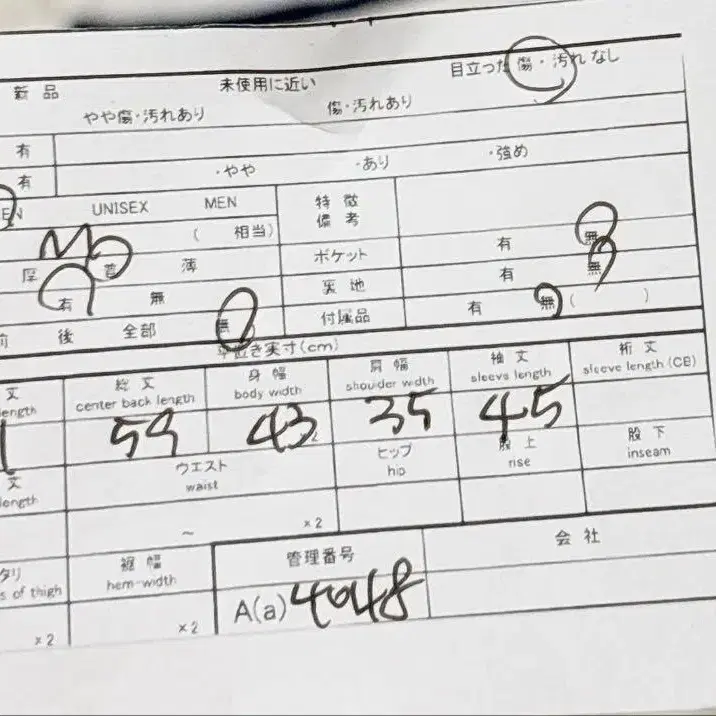 新品 未使用に近い 目立った傷・汚れなし
やや傷・汚れあり 傷・汚れあり
有
有 ・やや ・あり ・強め
EN UNISEX MEN 特徴
備考
M ( 相当)
厚 普 薄 ポケット 有 無
有 無 裏地 有 無
前 後 全部 無 付属品 有 無 ( )
平置き実寸(cm)
丈 総丈 身幅 肩幅 袖丈 裄丈
length center back length body width shoulder width sleeve length sleeve length (CB)
59 43 35 45
×2
丈 ウエスト ヒップ 股上 股下
length waist hip rise inseam
~ ×2
タリ 裾幅 管理番号 会社
s of thigh hem-width
×2 ×2 A(a) 4048